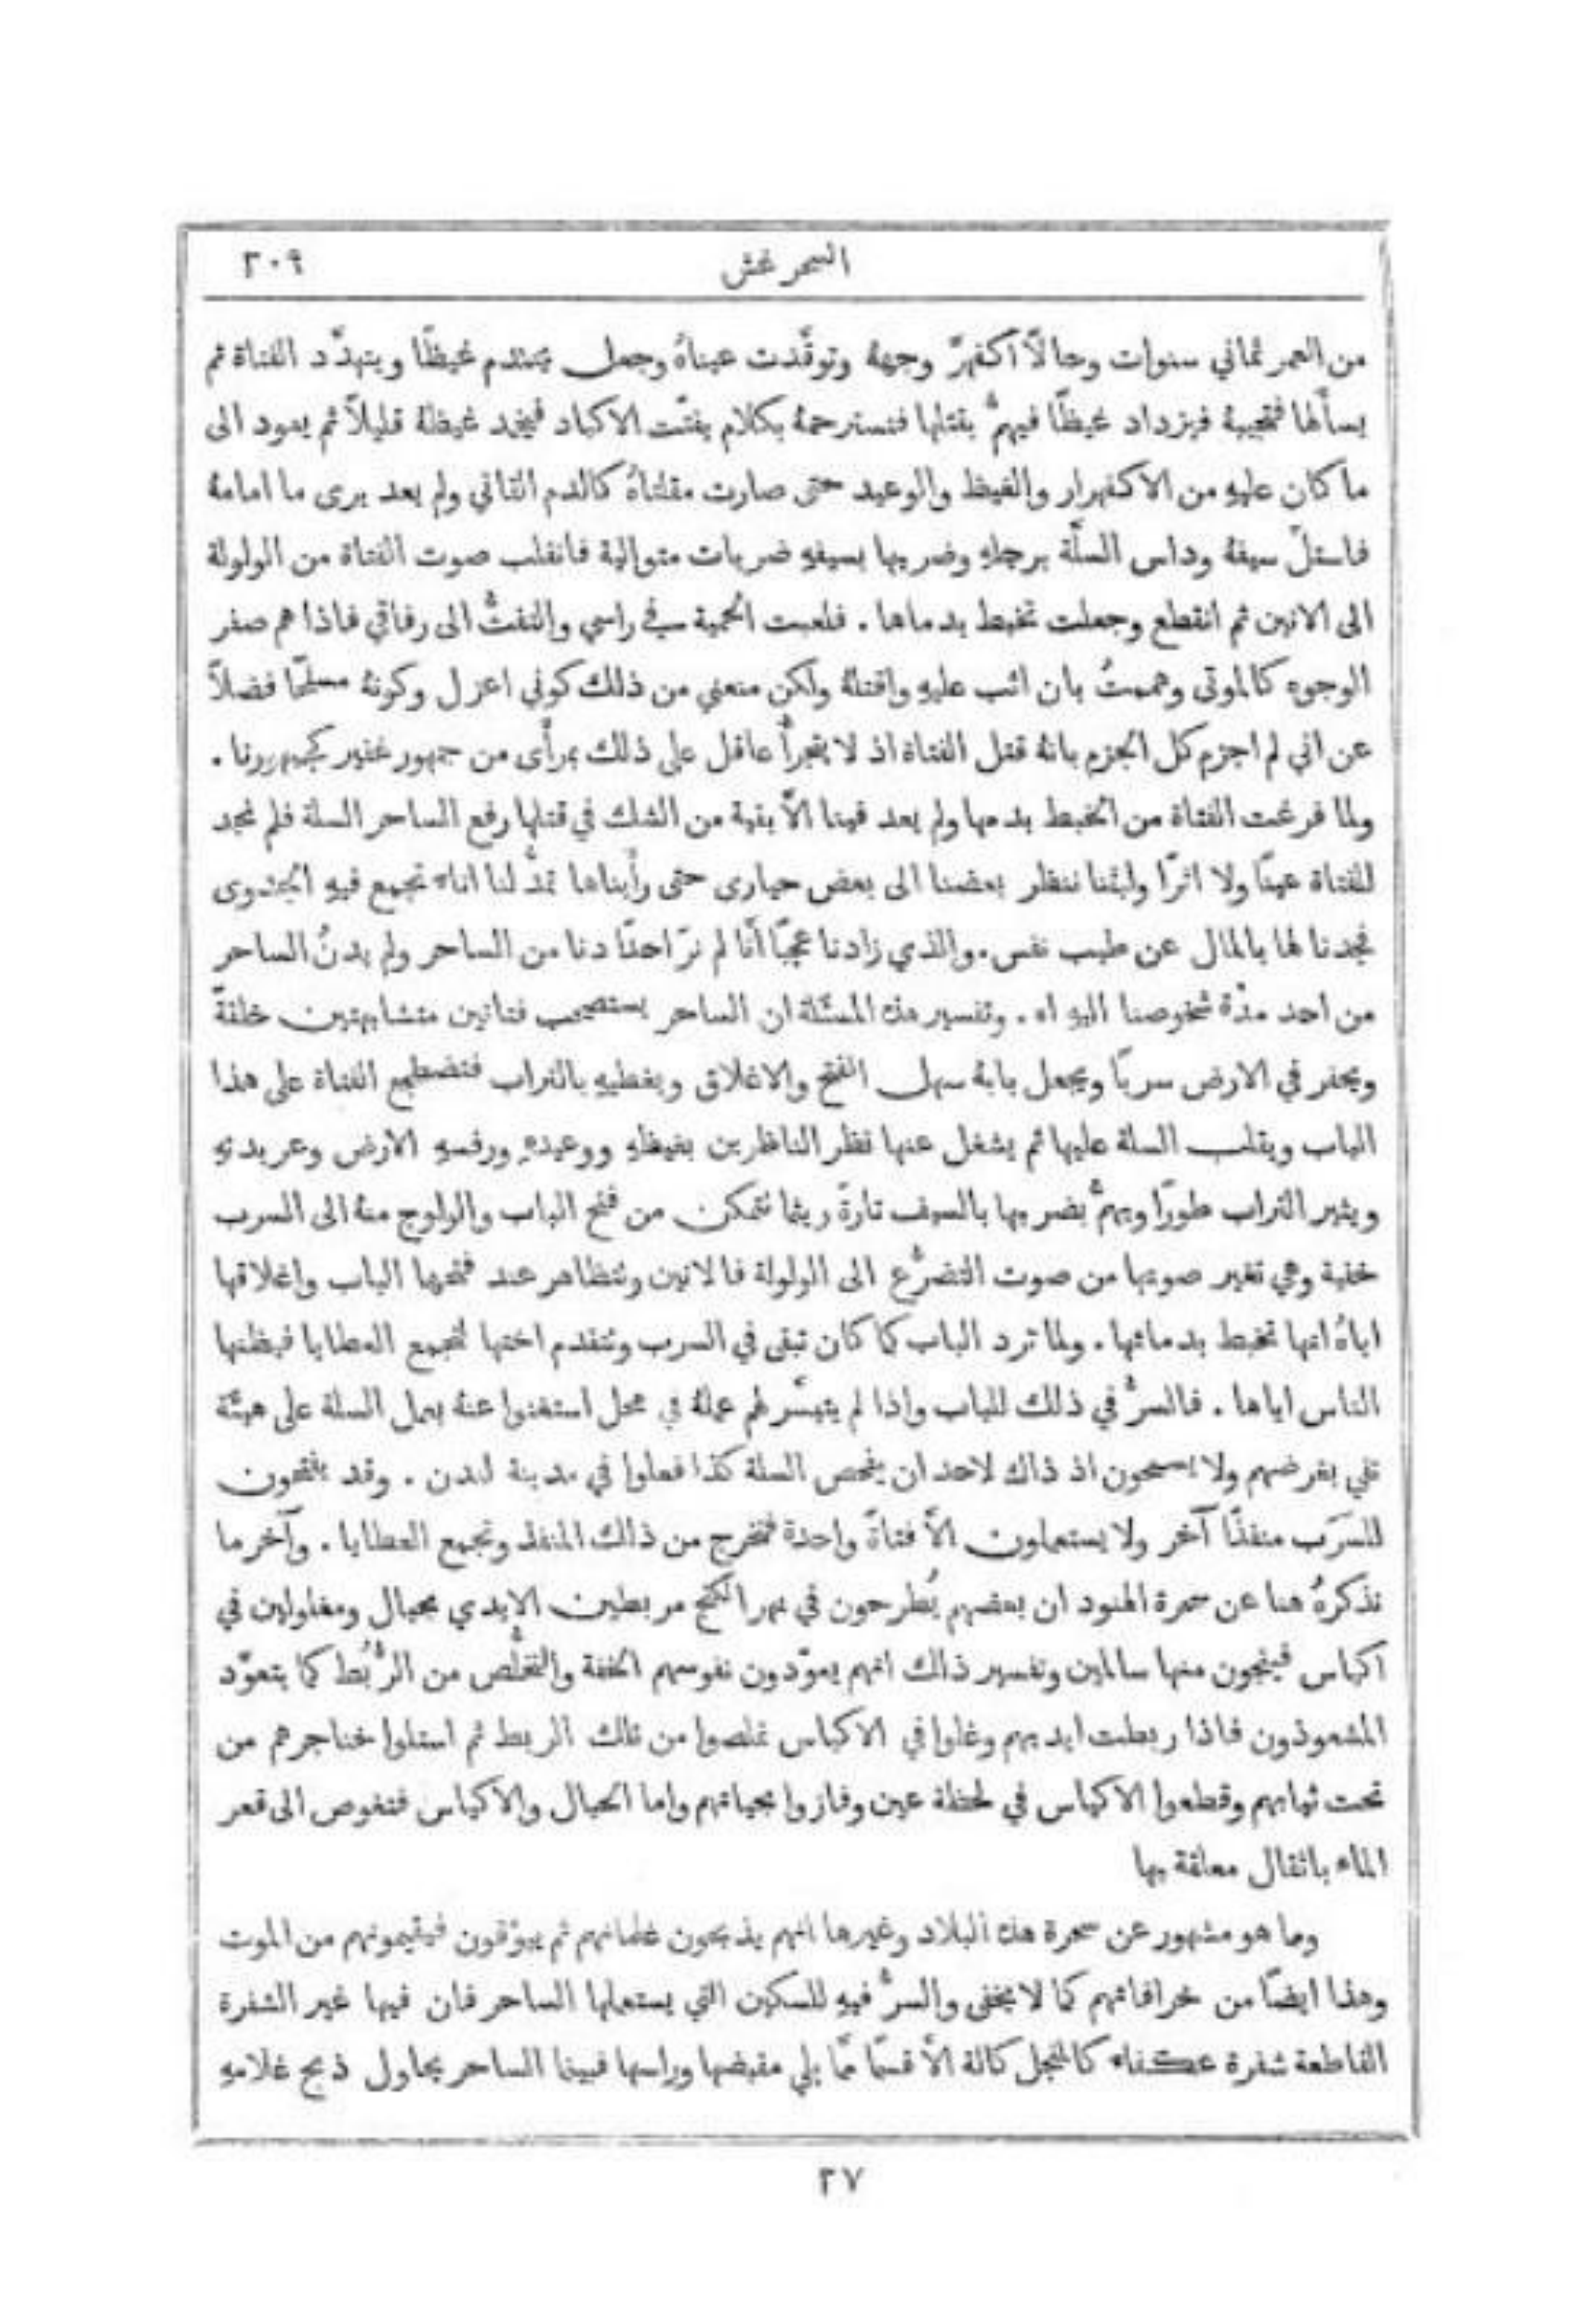 السحر غش
٢٠٩
من العمر ثماني سنوات وحالاً اكفهرَّ وجههُ وتوقَّدت عيناهُ وجعل يحتدم غيظًا ويتهدَّد الفتاة ثم
يسألها فتجيبهُ فيزداد غيظًا فيهمُّ بقتلها فتسترحمهُ بكلام يفتّت الاكباد فيخمد غيظهُ قليلاً ثم يعود الى
ما كان عليهِ من الاكفهرار والغيظ والوعيد حتى صارت مقلتاهُ كالدم القاني ولم يعد يرى ما امامهُ
فاستلَّ سيفهُ وداس السلَّة برجلهِ وضربها بسيفهِ ضربات متوالية فانقلب صوت الفتاة من الولولة
الى الانين ثم انقطع وجعلت تخبط بدماها . فلعبت الحمية في راسي والتفتُّ الى رفاقي فاذا هم صفر
الوجوه كالموتى وهممتُ بان اثب عليهِ واقتلهُ ولكن منعني من ذلك كوني اعزل وكونهُ مسلحًا فضلاً
عن اني لم اجزم كل الجزم بانهُ قتل الفتاة اذ لا يتجرأُ عاقل على ذلك بمرأى من جمهور غفير كجمهورنا .
ولما فرغت الفتاة من الخبط بدمها ولم يعد فينا الاَّ بقية من الشك في قتلها رفع الساحر السلة فلم نجد
للفتاة عينًا ولا اثرًا ولبثنا ننظر بعضنا الى بعض حيارى حتى رأيناها تمدُّ لنا اناء تجمع فيهِ الجدوى
فجدنا لها بالمال عن طيب نفس . والذي زادنا عجبًا أنَّا لم نرَ احدًا دنا من الساحر ولم يدنُ الساحر
من احد مدَّة شخوصنا اليهِ اه . وتفسير هذه المسئلة ان الساحر يستصحب فتاتين متشابهتين خلقةً
ويحفر في الارض سربًا ويجعل بابهُ سهل الفتح والاغلاق ويغطيهِ بالتراب فتضطجع الفتاة على هذا
الباب ويقلب السلة عليها ثم يشغل عنها نظر الناظرين بغيظهِ ووعيدهِ ورفسهِ الارض وعربدتهِ
ويثير التراب طورًا ويهمُّ بضربها بالسيف تارةً ريثما تتمكن من فتح الباب والولوج منهُ الى السرب
خفية وهي تغير صوتها من صوت التضرُّع الى الولولة فالانين وتتظاهر عند فتحها الباب واغلاقها
اياهُ انها تخبط بدمائها . ولما ترد الباب كما كان تبقى في السرب وتتقدم اختها لتجمع العطايا فيظنها
الناس اياها . فالسرُّ في ذلك للباب واذا لم يتيسَّر لهم عملهُ في محل استغنوا عنهُ بعمل السلة على هيئة
تفي بغرضهم ولا يسمحون اذ ذاك لاحد ان يفحص السلة كذا فعلوا في مدينة لندن . وقد يفتحون
للسَرَب منفذًا آخر ولا يستعملون الاَّ فتاةً واحدة فتخرج من ذلك المنفذ وتجمع العطايا . وآخر ما
نذكرهُ هنا عن سحرة الهنود ان بعضهم يُطرحون في نهر الكنج مربطين الايدي بحبال ومغلولين في
اكياس فينجون منها سالمين وتفسير ذلك انهم يعوّدون نفوسهم الخفة والتخلُّص من الرُّبُط كما يتعوَّد
المشعوذون فاذا ربطت ايديهم وغلوا في الاكياس خلصوا من تلك الربط ثم استلوا خناجرهم من
تحت ثيابهم وقطعوا الاكياس في لحظة عين وفازوا بحياتهم واما الحبال والاكياس فتغوص الى قعر
الماء باثقال معلقة بها
وما هو مشهور عن سحرة هذه البلاد وغيرها انهم يذبحون غلمانهم ثم يبوّقون فيقيمونهم من الموت
وهذا ايضًا من خرافاتهم كما لا يخفى والسرُّ فيهِ للسكين التي يستعملها الساحر فان فيها غير الشفرة
القاطعة شفرة عكفاء كالمنجل كالة الاَّ قسمًا ممَّا يلي مقبضها وراسها فبينما الساحر يحاول ذبح غلامهِ
٢٧